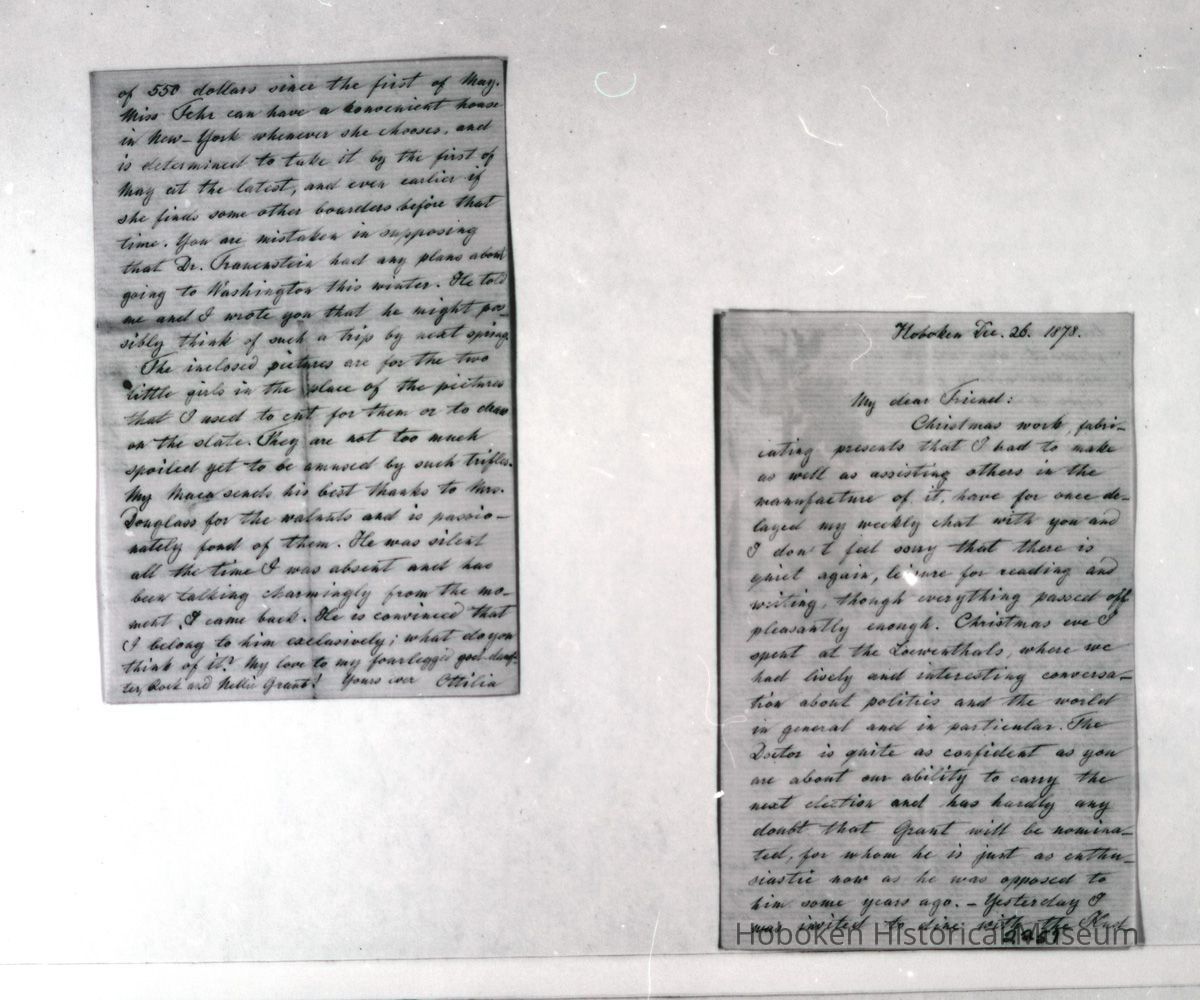 of 550 dollars since the first of May.
Miss Fehr can have a convenient house
in New-York whenever she chooses, and
is determined to take it by the first of
May at the latest, and even earlier if
she finds some other boarders before that
time. You are mistaken in supposing
that Dr. Frauenstein had any plans about
going to Washington this winter. He told
me and I wrote you that he might pos-
sibly think of such a trip by next spring.
The inclosed pictures are for the two
little girls in the place of the pictures
that I used to cut for them or to draw
on the slate. They are not too much
spoiled yet to be amused by such trifles.
My Maca sends his best thanks to Mrs.
Douglass for the walnuts and is passio-
nately fond of them. He was silent
all the time I was absent and has
been talking charmingly from the mo-
ment I came back. He is convinced that
I belong to him exclusively; what do you
think of it? My love to my fourlegged god-daugh-
ter, Rock and Nellie Grant! Yours ever Ottilia
Hoboken Dec. 26. 1878.
My dear Friend:
Christmas work, fabri-
cating presents that I had to make
as well as assisting others in the
manufacture of it, have for once de-
layed my weekly chat with you and
I don't feel sorry that there is
quiet again, leisure for reading and
writing, though everything passed off
pleasantly enough. Christmas eve I
spent at the Loewenthals, where we
had lively and interesting conversa-
tion about politics and the world
in general and in particular. The
Doctor is quite as confident as you
are about our ability to carry the
next election and has hardly any
doubt that Grant will be nomina-
ted, for whom he is just as enthu-
siastic now as he was opposed to
him some years ago. - Yesterday I
was invited to dine with the
Hoboken Historical Museum